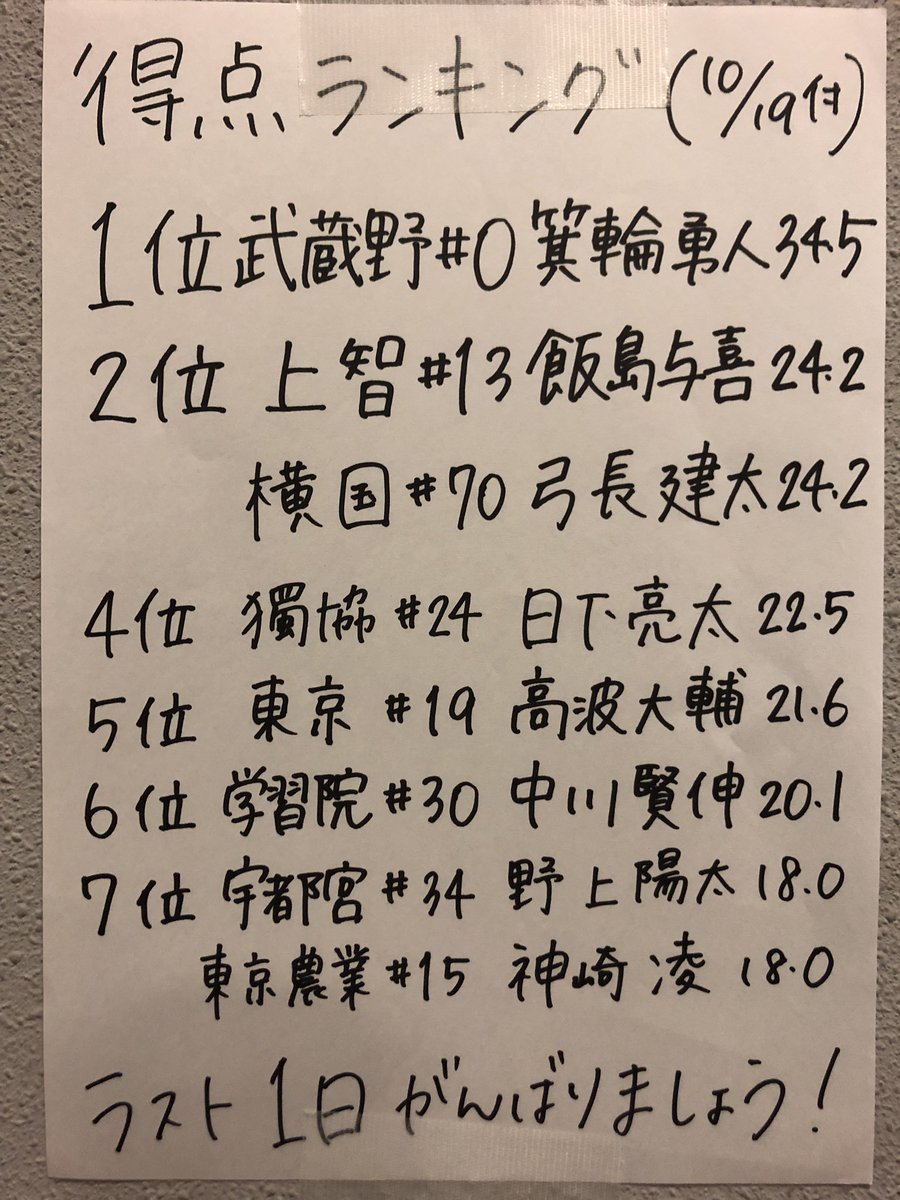 得点ランキング(10/19付)
1位武蔵野#0 箕輪勇人34.5
2位 上智#13飯島与喜24.2
横国#70弓長建太24.2
4位 獨協#24 日下亮太22.5
5位 東京#19 高波大輔21.6
6位 学習院#30 中川賢伸20.1
7位 宇都宮#34 野上陽太18.0
東京農業#15 神崎凌 18.0
ラスト1日がんばりましょう!